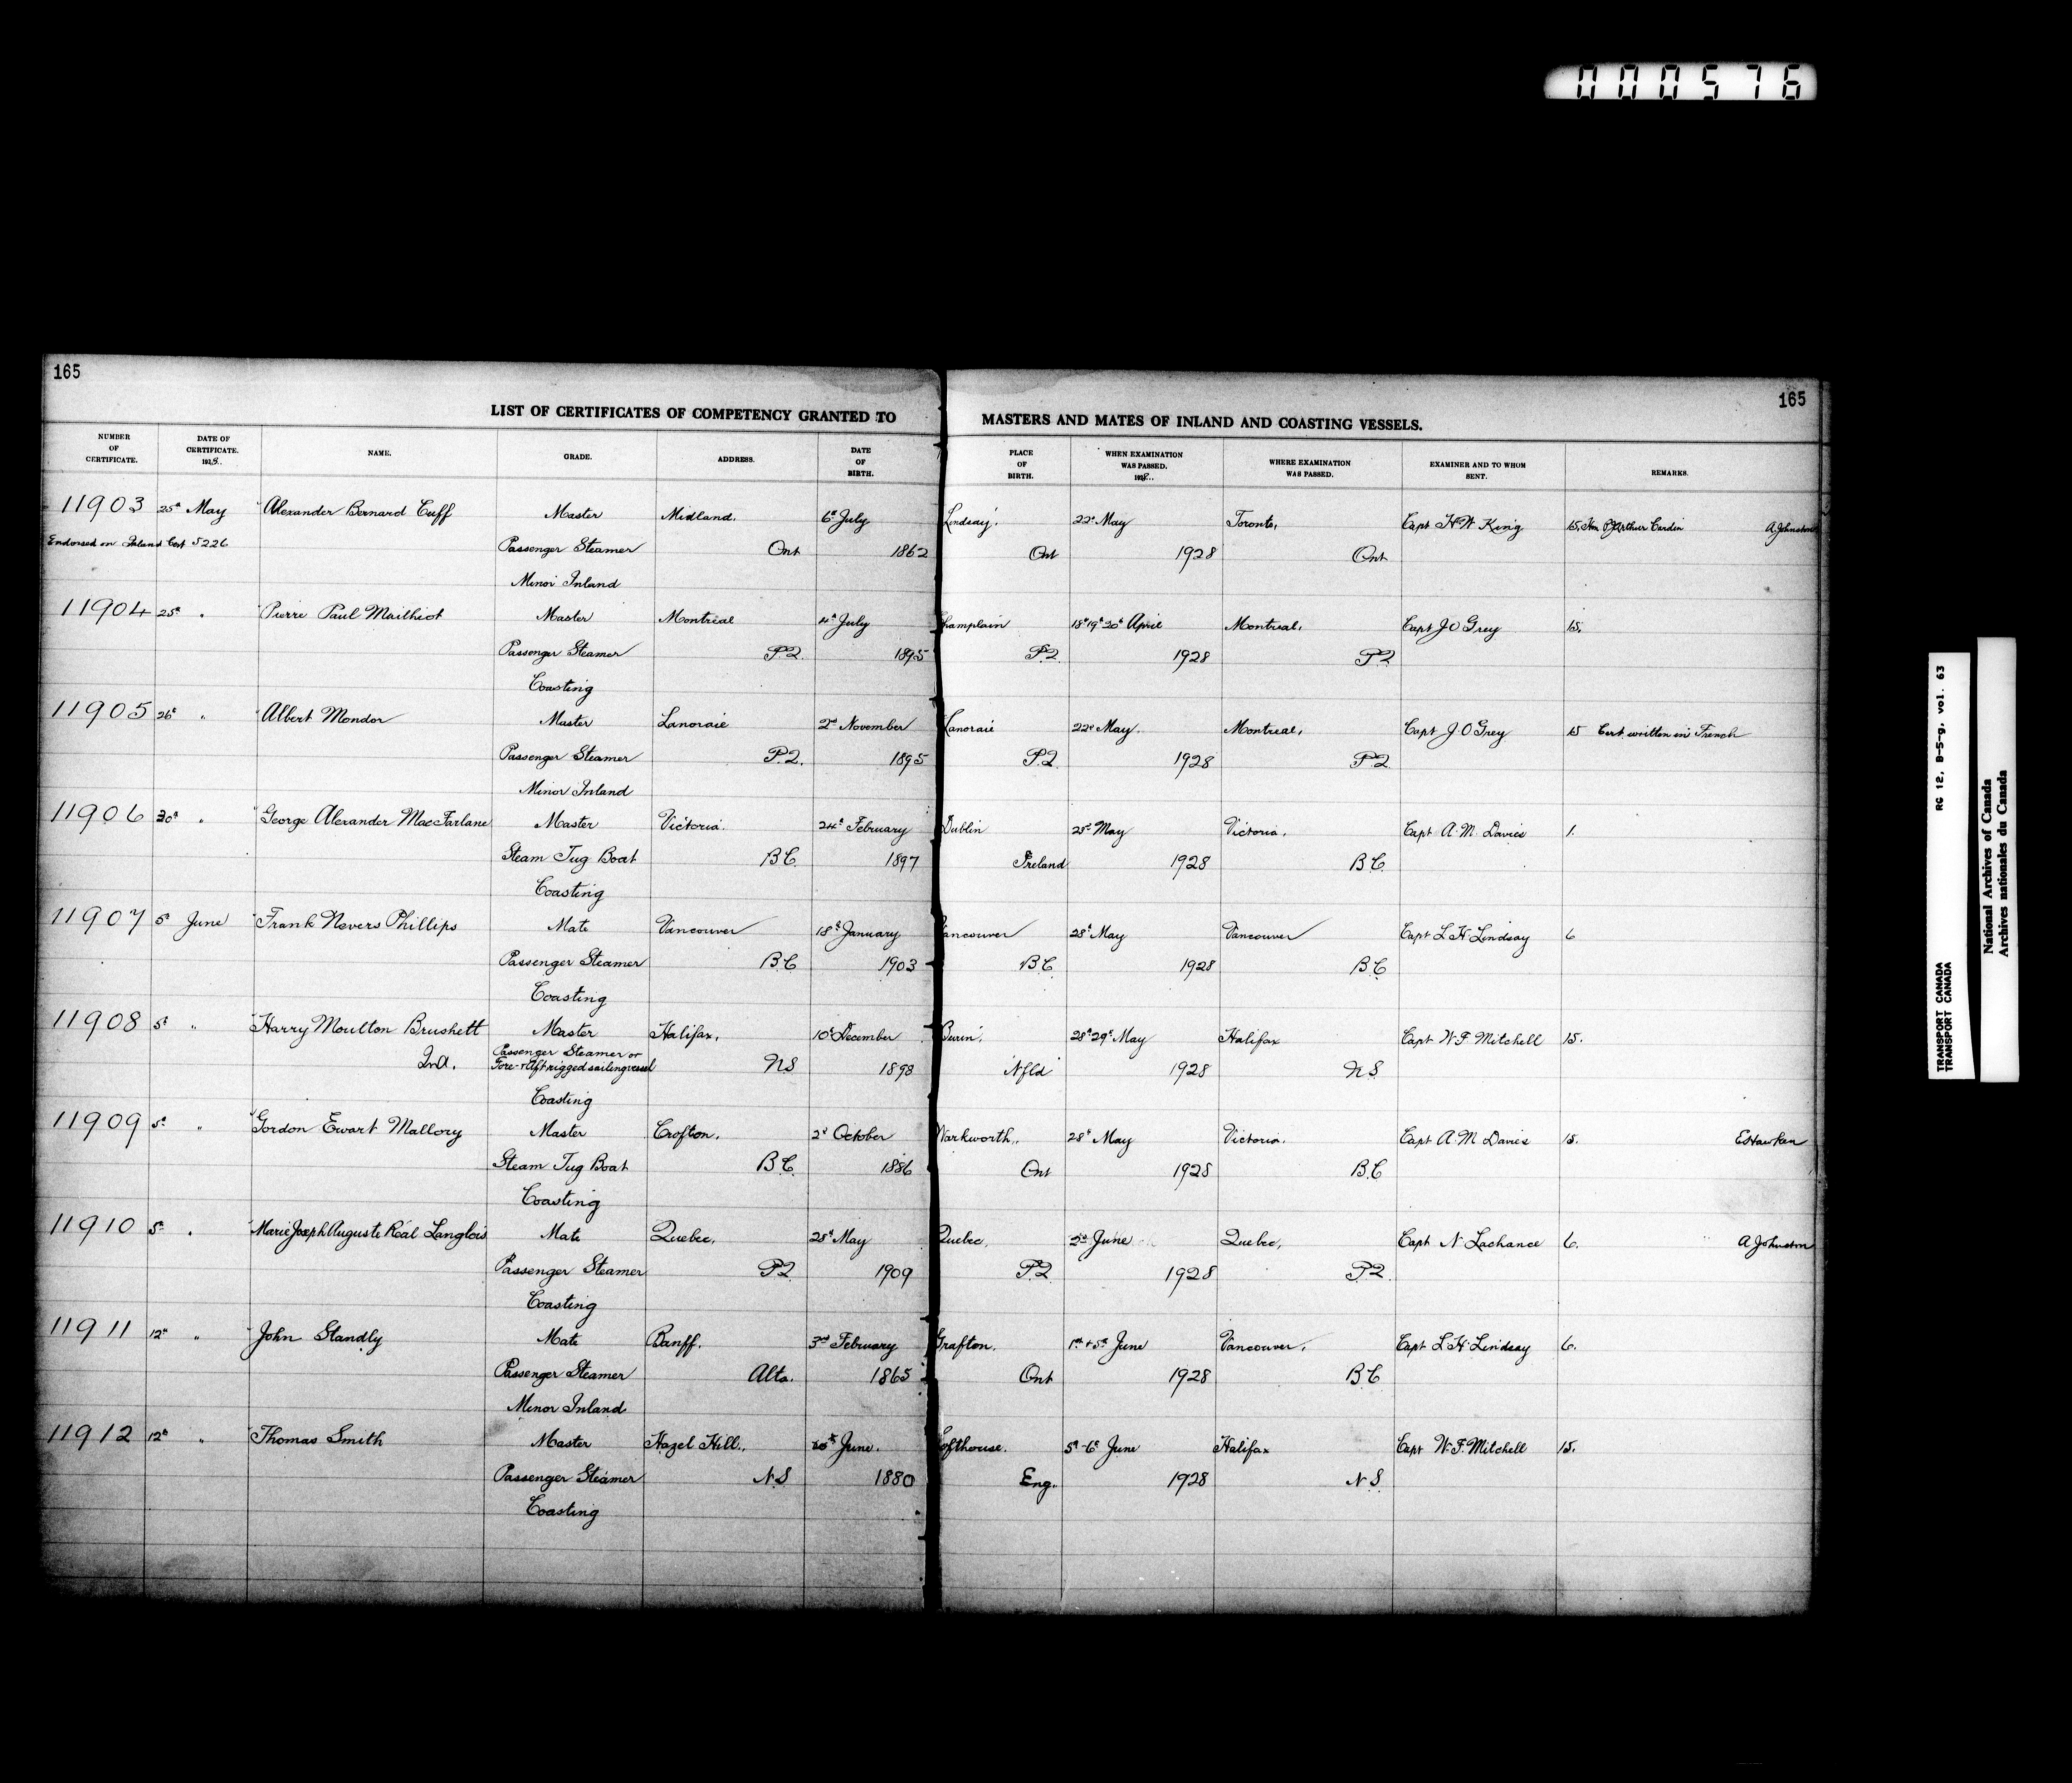 000576
165
165
LIST OF CERTIFICATES OF COMPETENCY GRANTED TO MASTERS AND MATES OF INLAND AND COASTING VESSELS.
NUMBER OF CERTIFICATE. DATE OF CERTIFICATE. 1928. NAME. GRADE. ADDRESS. DATE OF BIRTH. PLACE OF BIRTH. WHEN EXAMINATION WAS PASSED. 1928. WHERE EXAMINATION WAS PASSED. EXAMINER AND TO WHOM SENT. REMARKS.
11903 25th May Alexander Bernard Cuff Master Midland. 6th July Lindsay. 22nd May Toronto, Capt H W King 15. Hon P J Arthur Cardin A Johnston
Endorsed on Inland Cert 5226 Passenger Steamer Ont 1862 Ont 1928 Ont
Minor Inland
11904 25th " Pierre Paul Mailhiot Master Montreal 4th July Champlain 18th 19th 20th April Montreal, Capt J O Grey 15.
Passenger Steamer P.Q. 1895 P.Q. 1928 P.Q.
Coasting
11905 26th " Albert Mondor Master Lanoraie 2nd November Lanoraie 22nd May. Montreal, Capt J. O Grey 15 Cert. written in French
Passenger Steamer P.Q. 1895 P.Q. 1928 P.Q.
Minor Inland
11906 30th " George Alexander MacFarlane Master Victoria. 24th February Dublin 25th May Victoria, Capt A. M. Davies 1.
Steam Tug Boat B.C. 1897 Ireland 1928 B.C.
Coasting
11907 5th June Frank Nevers Phillips Mate Vancouver 18th January Vancouver 28th May Vancouver Capt L H Lindsay 6
Passenger Steamer B.C 1903 B.C. 1928 B.C
Coasting
11908 5th " Harry Moulton Brushett Master Halifax, 10th December Burin, 28th 29th May Halifax Capt W. F. Mitchell 15.
Passenger Steamer or
Fore & Aft rigged sailing vessel NS 1898 Nfld 1928 N S
Coasting
11909 5th " Gordon Ewart Mallory Master Crofton. 2nd October Warkworth.. 28th May Victoria. Capt A. M Davies 15. E Hawken
Steam Tug Boat B.C. 1886 Ont 1928 B.C
Coasting
11910 5th " Marie Joseph Auguste Réal Langlois Mate Quebec, 28th May Quebec, 2nd June Quebec, Capt N Lachance 6. A Johnston
Passenger Steamer P.Q 1909 P.Q. 1928 P.Q.
Coasting
11911 12th " John Standly Mate Banff. 3rd February Grafton. 1st & 5th June Vancouver, Capt L H Lindsay 6.
Passenger Steamer Alta. 1865 Ont 1928 B.C
Minor Inland
11912 12th " Thomas Smith Master Hazel Hill.. June. Lofthouse. 5th-6th June Halifax Capt W. F. Mitchell 15.
Passenger Steamer N.S 1880 Eng. 1928 N S.
Coasting
RG 12, B-5-g, vol. 63
TRANSPORT CANADA
TRANSPORT CANADA
National Archives of Canada
Archives nationales du Canada